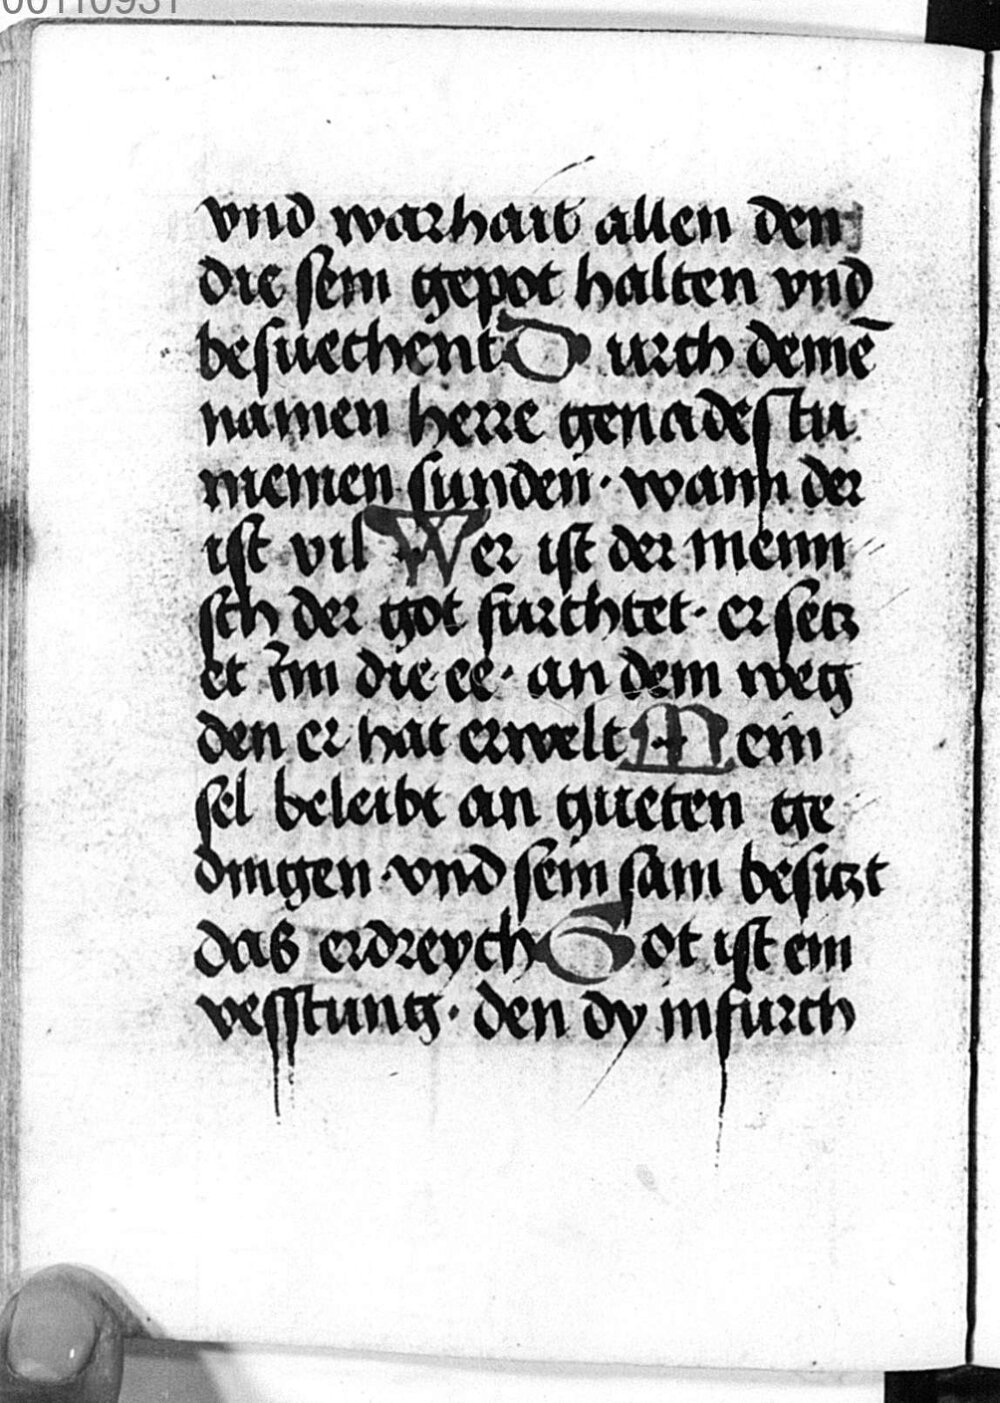 00110931
vnd warhait allen den
die sein gepot halten vnd
besuechent Durch deinē
namen herre genadestu
meinen sunden · wann der
ist vil Wer ist der menn
sch der got furchtet · er setz
et im die ee · an dem weg
den er hat erwelt Mein
sel beleibt an gueten ge
dingen · vnd sein sam besitzt
das erdreych Got ist ein
vesstung · den dy in furch